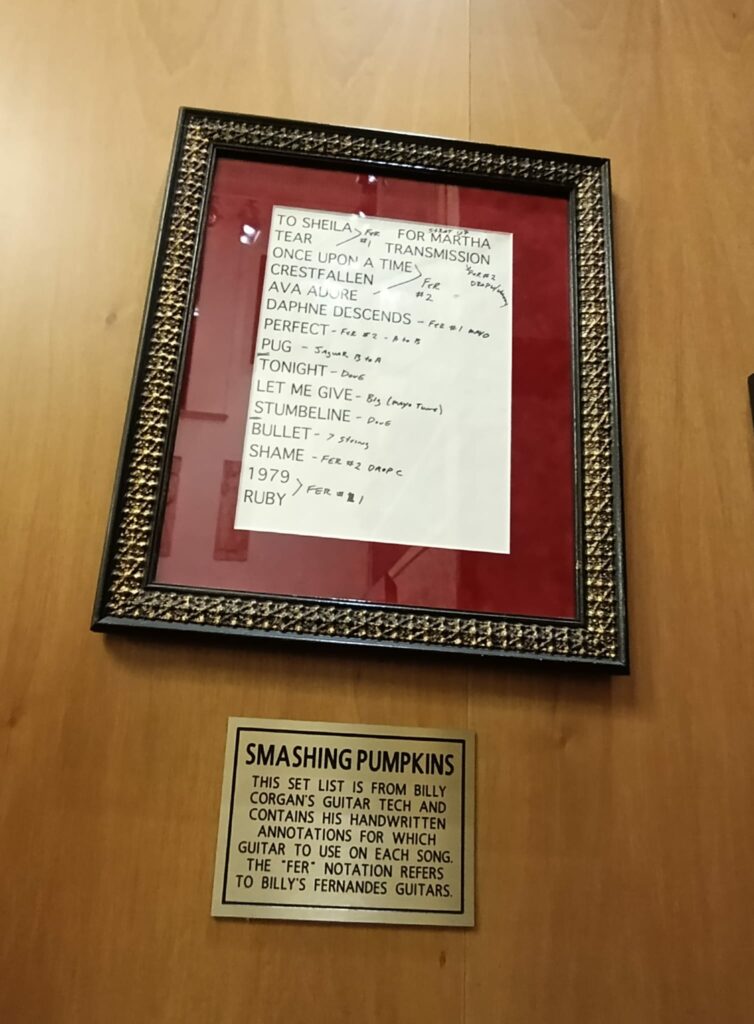 TO SHEILA
TEAR
FER #1
ONCE UPON A TIME
CRESTFALLEN
AVA ADORE
FER #2
DAPHNE DESCENDS - FER #1 MAYO
PERFECT - FER #2 - A to B
PUG - JAGUAR B to A
TONIGHT - DOUG
LET ME GIVE - BIG (MAYO TUNE)
STUMBELINE - DOUG
BULLET - 7 STRING
SHAME - FER #2 DROP C
1979
RUBY
FER # 1
FOR MARTHA
TRANSMISSION
FER #2
SMASHING PUMPKINS
THIS SET LIST IS FROM BILLY
CORGAN'S GUITAR TECH AND
CONTAINS HIS HANDWRITTEN
ANNOTATIONS FOR WHICH
GUITAR TO USE ON EACH SONG.
THE "FER" NOTATION REFERS
TO BILLY'S FERNANDES GUITARS.